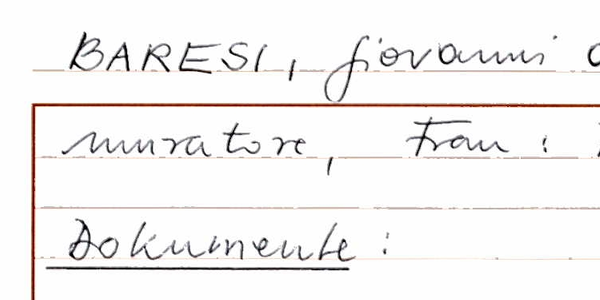 BARESI, Giovanni
muratore, Frau :
Dokumente :